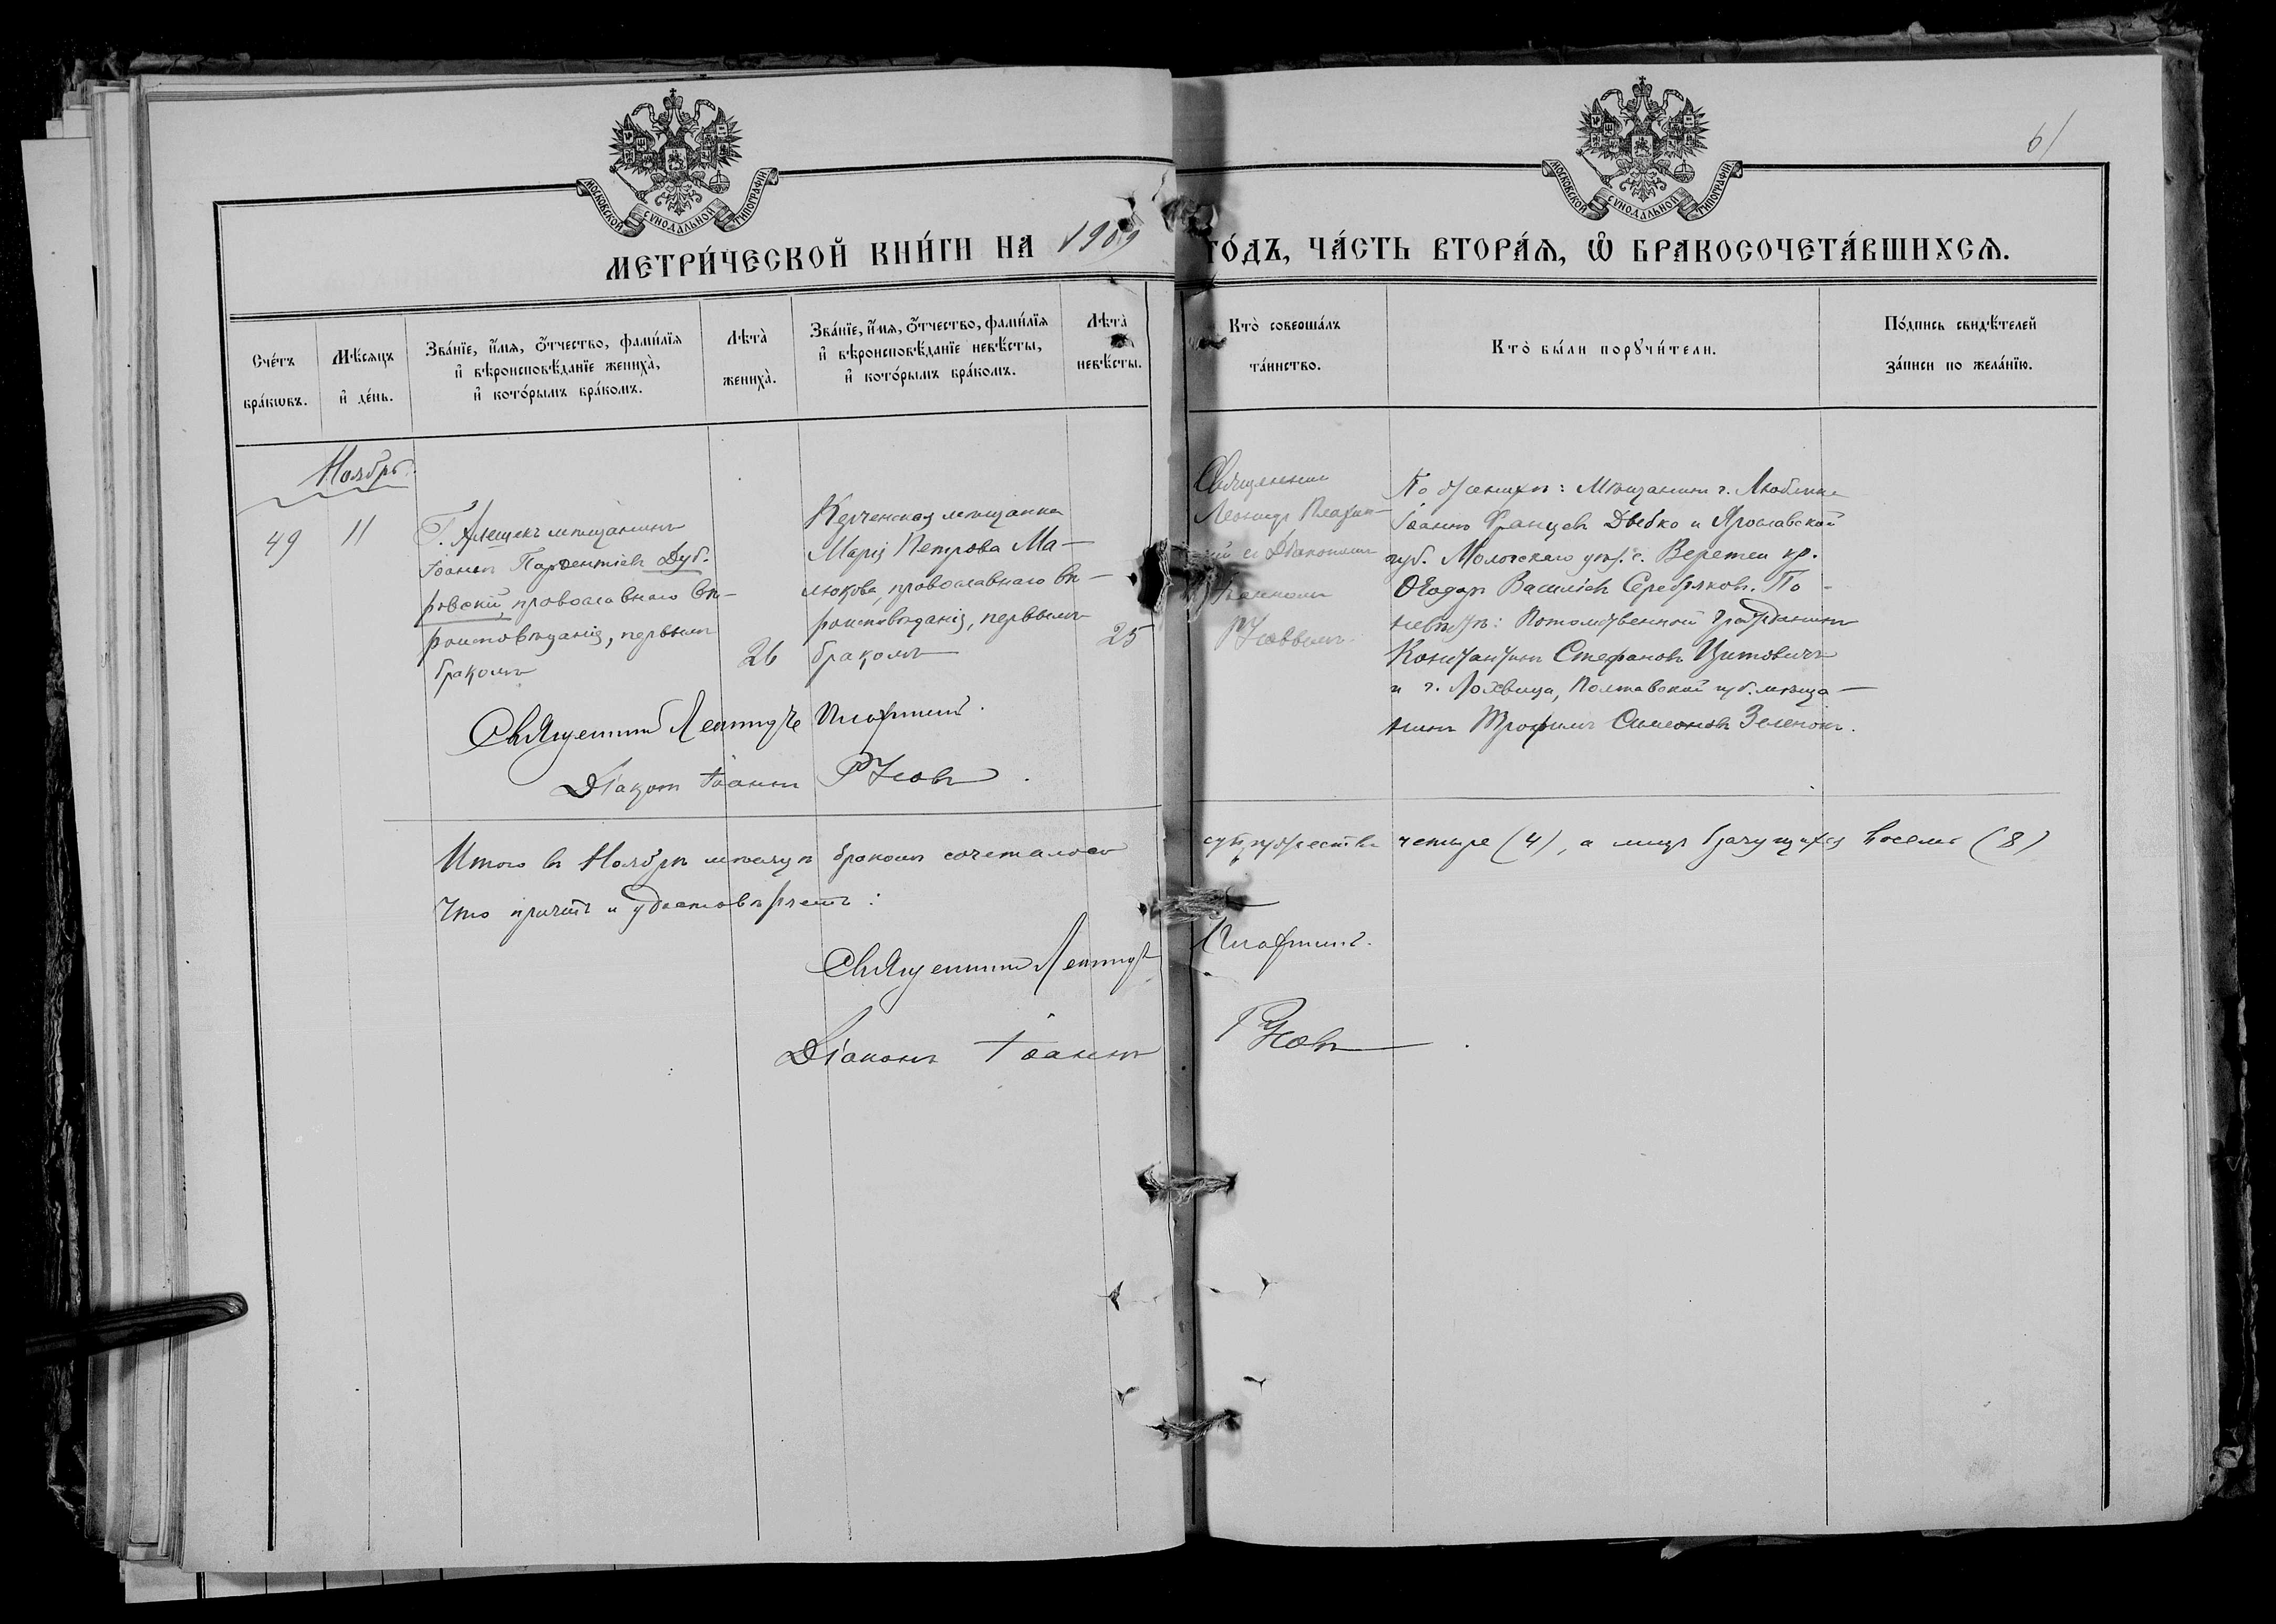 МОСКОВСКОЙ СУНОДАЛЬНОЙ ТИПОГРАФІИ
МОСКОВСКОЙ СУНОДАЛЬНОЙ ТИПОГРАФІИ
61
МЕТРИ́ЧЕСКОЙ КНИ́ГИ НА 1909 ГО́ДЪ, ЧА́СТЬ ВТОРА́Ѧ, Ѽ БРАКОСОЧЕТА́ВШИХСѦ.
Сче́тъ
бра́кѡвъ.
Мѣ́сяцъ
и҆ де́нь.
Зва́нїе, и҆́мя, ѻ҆́тчество, фами́лїя
и҆ вѣроисповѣ́данїе жениха̀,
и҆ кото́рымъ бра́комъ.
Лѣта̀
жениха̀.
Зва́нїе, и҆́мя, ѻ҆́тчество, фами́лїя
и҆ вѣроисповѣ́данїе невѣ́сты,
и҆ кото́рымъ бра́комъ.
Лѣта̀
невѣ́сты.
Кто̀ соверша́лъ
та́инство.
Кто̀ бы́ли порꙋчи́тели.
По́дпись свидѣ́телей
за́писи по жела́нїю.
Ноябрь.
49
11
Г. Алешекъ мѣщанинъ
Іоаннъ Парѳентіевъ Дуб-
ровскій, православнаго вѣ-
роисповѣданія, первымъ
бракомъ
26
Керченская мѣщанка
Марія Петрова Ма-
люкова, православнаго вѣ-
роисповѣданія, первымъ
бракомъ
25
Священникъ
Леонидъ
съ Діакономъ
Іоанномъ
По женихѣ: Мѣщанинъ г. Люблина
Іоаннъ Францевъ Двебко и Ярославской
губ. Мологскаго уѣз. с. Веретеи кр.
Ѳеодоръ Василіевъ Серебряковъ. По
невѣстѣ: Потомственный Гражданинъ
Константинъ Стефановъ Цитовичъ
и г. Лохвица, Полтавской губ. мѣща-
нинъ Трофимъ Симеоновъ Зеленый.
Священникъ Леонидъ
Діаконъ Іоаннъ
Итого въ Ноябрѣ мѣсяцѣ бракомъ сочеталось супружествъ четыре (4), а лицъ брачущихся восемь (8)
Что причтъ и удостовѣряетъ:
Священникъ Леонидъ
Діаконъ Іоаннъ